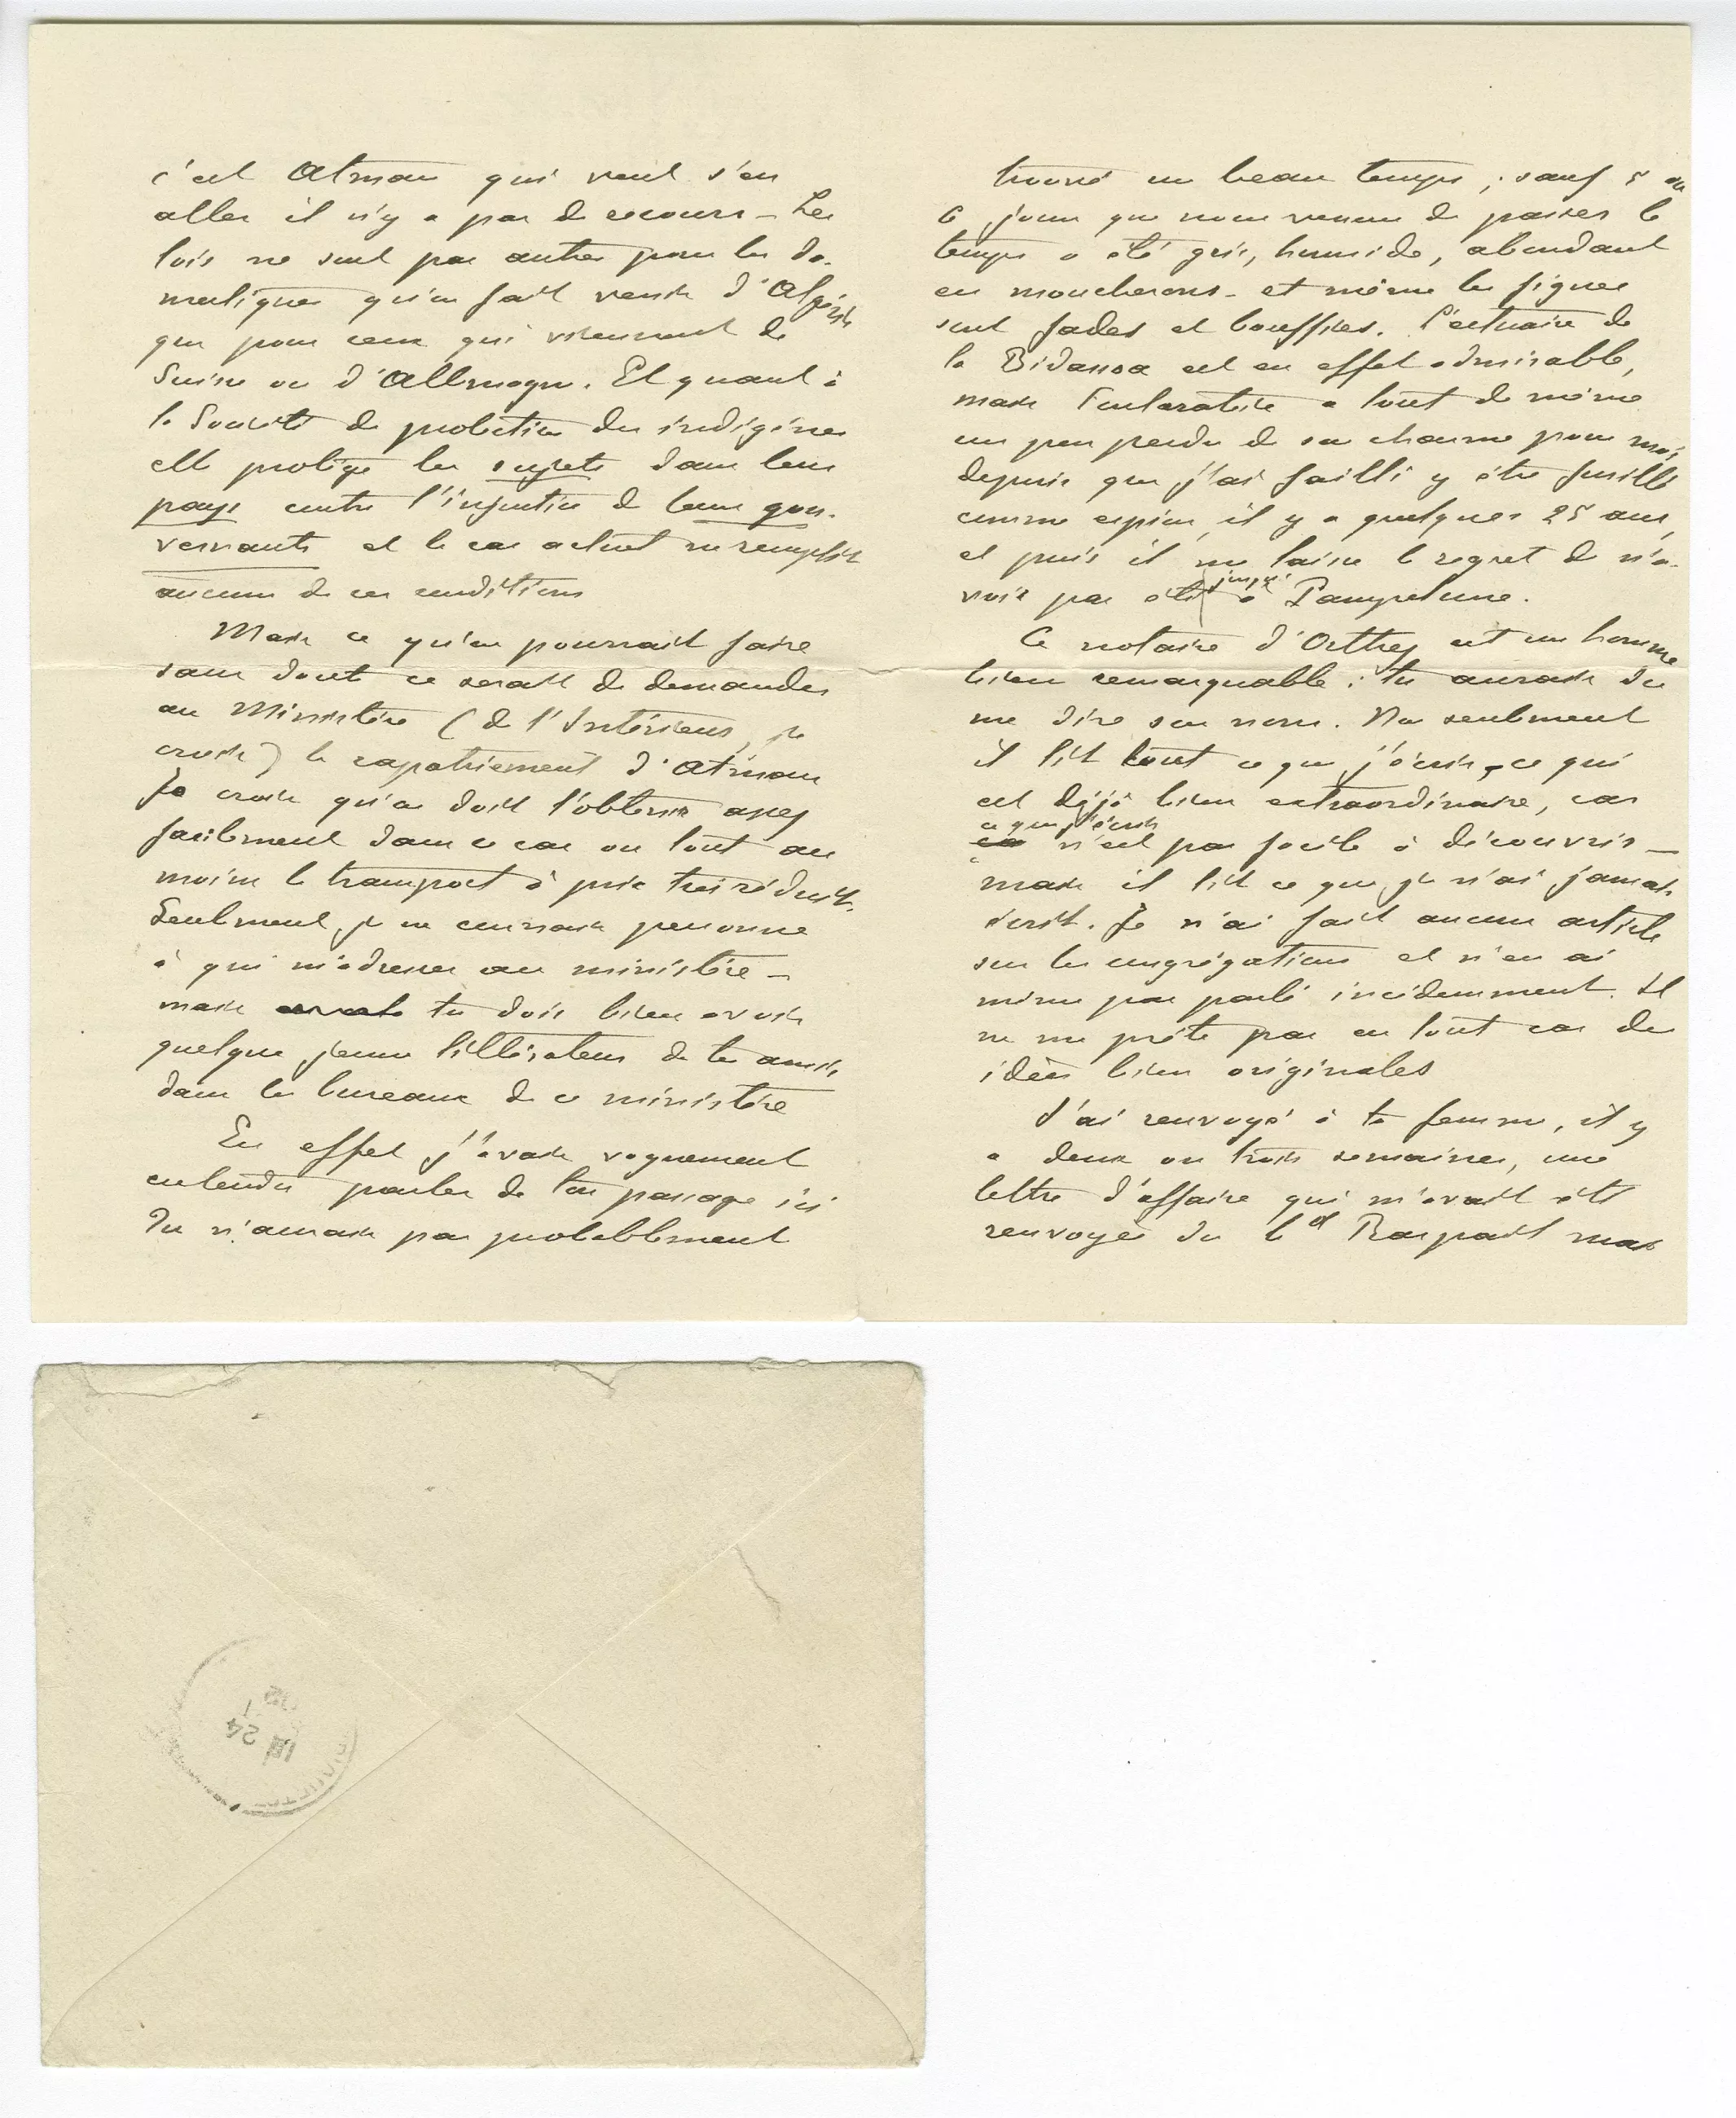 c'est Atman qui veut s'en
aller il n'y a pas de recours – Les
lois ne sont pas autres pour les do-
mestiques qu'on fait venir d'Algérie
que pour ceux qui viennent de
Suisse ou d'Allemagne. Et quant à
la Société de protection des indigènes
elle protège les sujets dans leur
pays contre l'injustice de leurs gou-
vernants et le cas actuel ne remplit
aucune de ces conditions
Mais ce qu'on pourrait faire
sans doute ce serait de demander
au Ministère (de l'Intérieur, je
crois) le rapatriement d'Atman
Je crois qu'on doit l'obtenir assez
facilement dans ce cas ou tout au
moins le transport à prix très réduit.
Seulement je ne connais personne
à qui m'adresser au ministère –
mais tu dois bien avoir
quelque jeune littérateur de tes amis
dans les bureaux de ce ministère
En effet j'avais vaguement
entendu parler de ton passage ici
Tu n'aurais pas probablement
trouvé un beau temps ; sauf 5 ou
6 jours que nous venons de passer le
temps a été gris, humide, abondant
en moucherons – et même les figues
sont fades et bouffies. L'estuaire de
la Bidassoa est en effet admirable,
mais Fontarabie a tout de même
un peu perdu de son charme pour moi,
depuis que j'ai failli y être fusillé
comme espion, il y a quelques 25 ans,
et puis il me laisse le regret de n'a-
voir pas été jusqu'à Pampelune.
Ce notaire d'Orthez est un homme
bien remarquable : tu aurais dû
me dire son nom. Non seulement
il lit tout ce que j'écris, ce qui
est déjà bien extraordinaire, car
ce que j'écris
n'est pas facile à découvrir –
mais il lit ce que je n'ai jamais
écrit. Je n'ai fait aucun article
sur les congrégations et n'en ai
même pas parlé incidemment. Il
ne me prête pas en tout cas des
idées bien originales
J'ai renvoyé à ta femme, il y
a deux ou trois semaines, une
lettre d'affaire qui m'avait été
renvoyée du bd Raspail mais
24